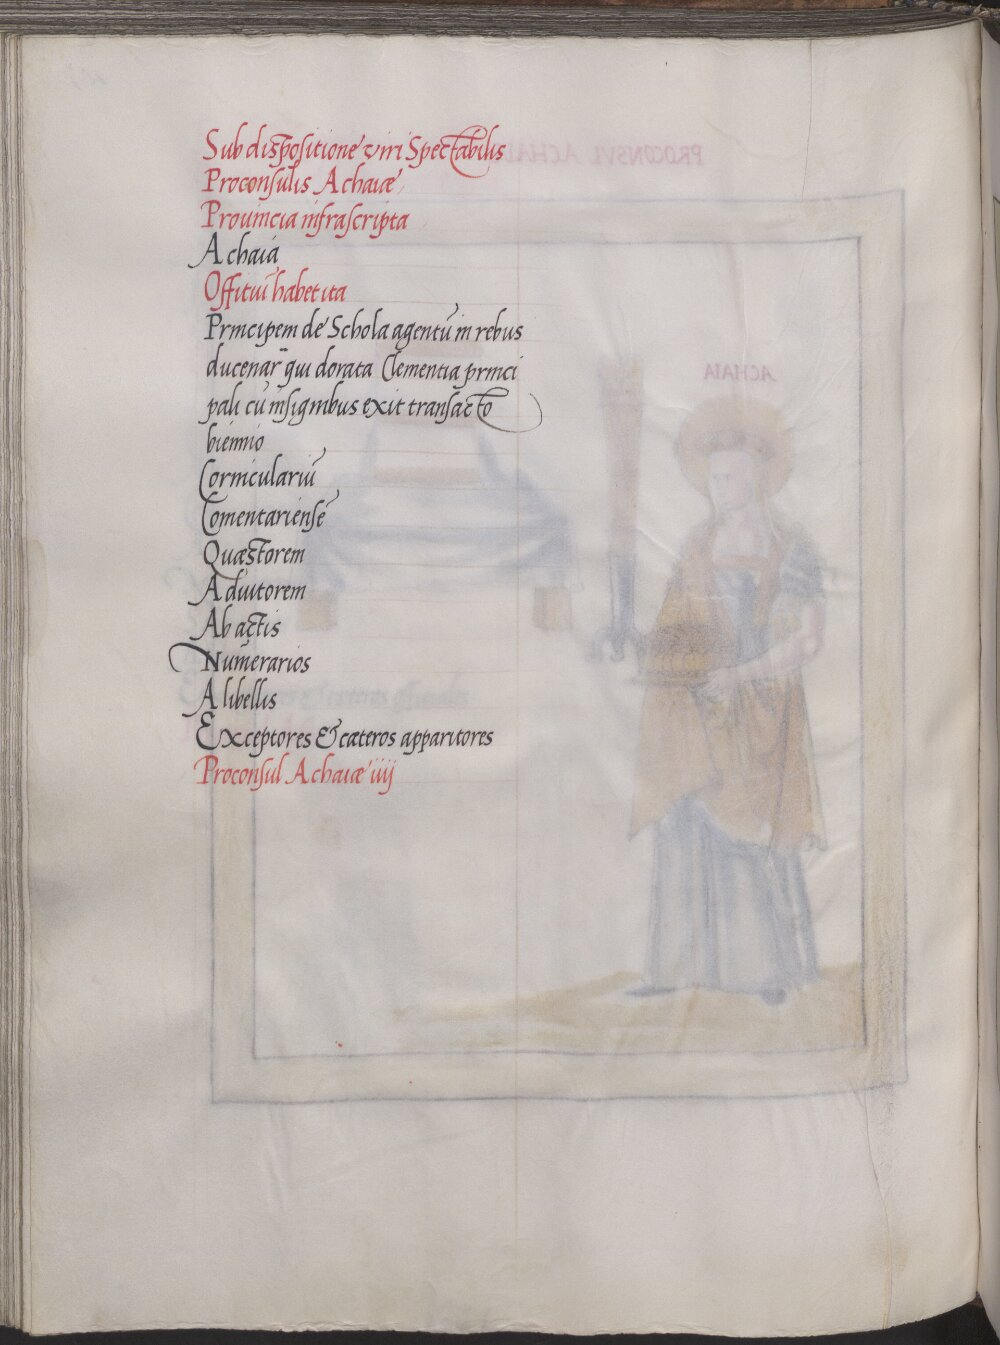 Sub dispositione viri Spectabilis
Proconsulis Achaiæ
Prouincia infrascripta
Achaia
Offitiū habet ita
Principem de Schola agentū in rebus
ducenar̄ qui dorata Clementia princi
pali cū insignibus exit transacto
biennio
Corniculariū
Comentariensē
Quæstorem
Adiutorem
Ab actis
Numerarios
A libellis
Exceptores & cæteros apparitores
Proconsul Achaiæ iiij
PROCONSVL ACHAIA
ACHAIA